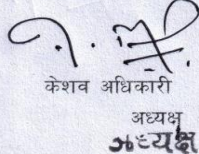 केशव अधिकारी
अध्यक्ष
अध्यक्ष